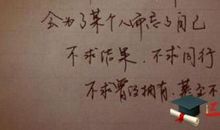 会为了某个人而忘了自己
不求结果，不求同行
不求曾经拥有，甚至不